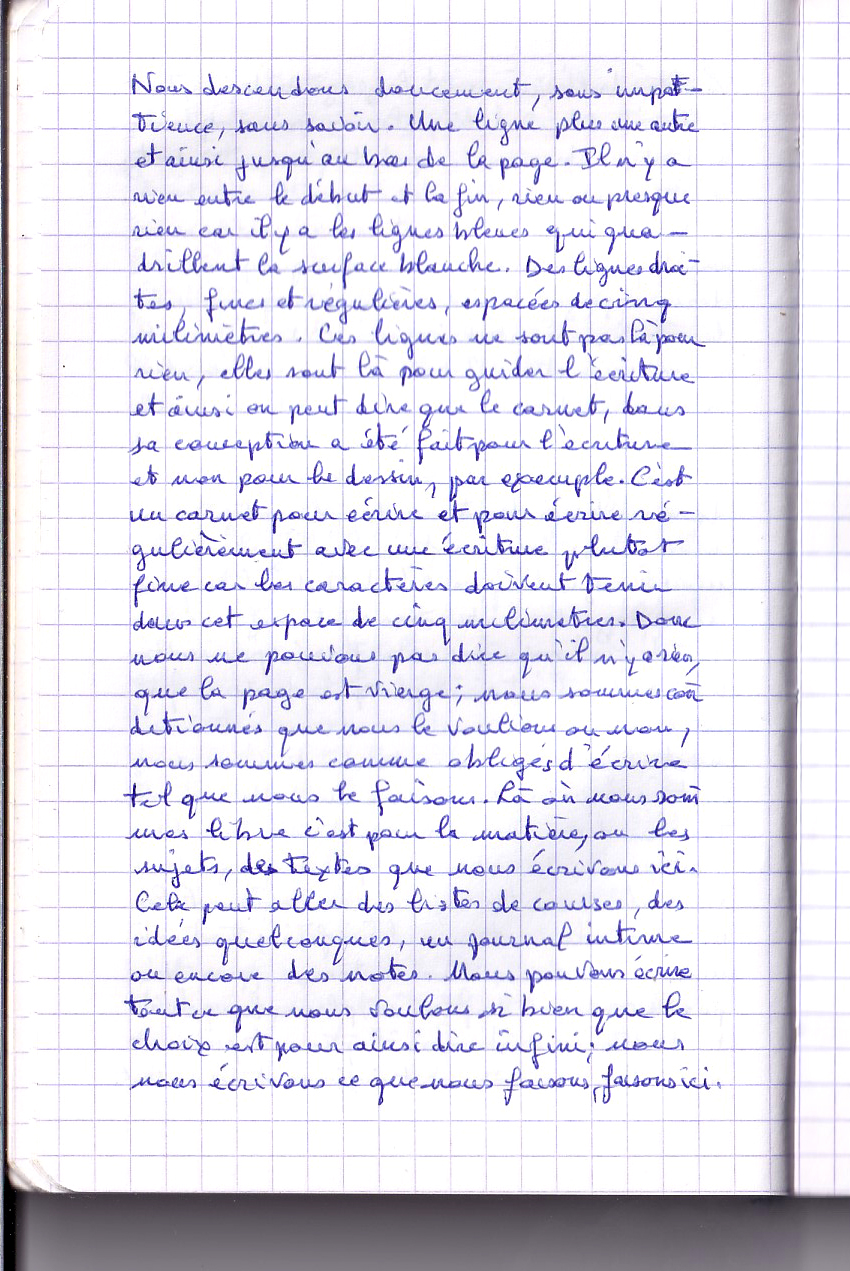 Nous descendons doucement, sans impat-
tience, sans savoir. Une ligne plus une autre
et ainsi jusqu'au bas de la page. Il n'y a
rien entre le début et la fin, rien ou presque
rien car il y a les lignes bleues qui qua-
drillent la surface blanche. Des lignes droi-
tes, fines et régulières, espacées de cinq
milimètres. Ces lignes ne sont pas là pour
rien, elles sont là pour guider l'écriture
et ainsi on peut dire que le carnet, dans
sa conception a été fait pour l'écriture
et non pour le dessin, par exemple. C'est
un carnet pour écrire et pour écrire ré-
gulièrement avec une écriture plutot
fine car les caractères doivent tenir
dans cet espace de cinq milimetres. Donc
nous ne pouvons pas dire qu'il n'y a rien,
que la page est vierge; nous sommes con
ditionnés que nous le voulions ou non,
nous sommes comme obligés d'écrire
tel que nous le faisons. Là où nous som
mes libre c'est pour la matière, ou les
sujets, des textes que nous écrivons ici.
Cela peut aller des listes de courses, des
idées quelconques, un journal intime
ou encore des notes. Nous pouvons écrire
tout ce que nous voulons si bien que le
choix est pour ainsi dire infini; nous
nous écrivons ce que nous faisons, faisons ici.